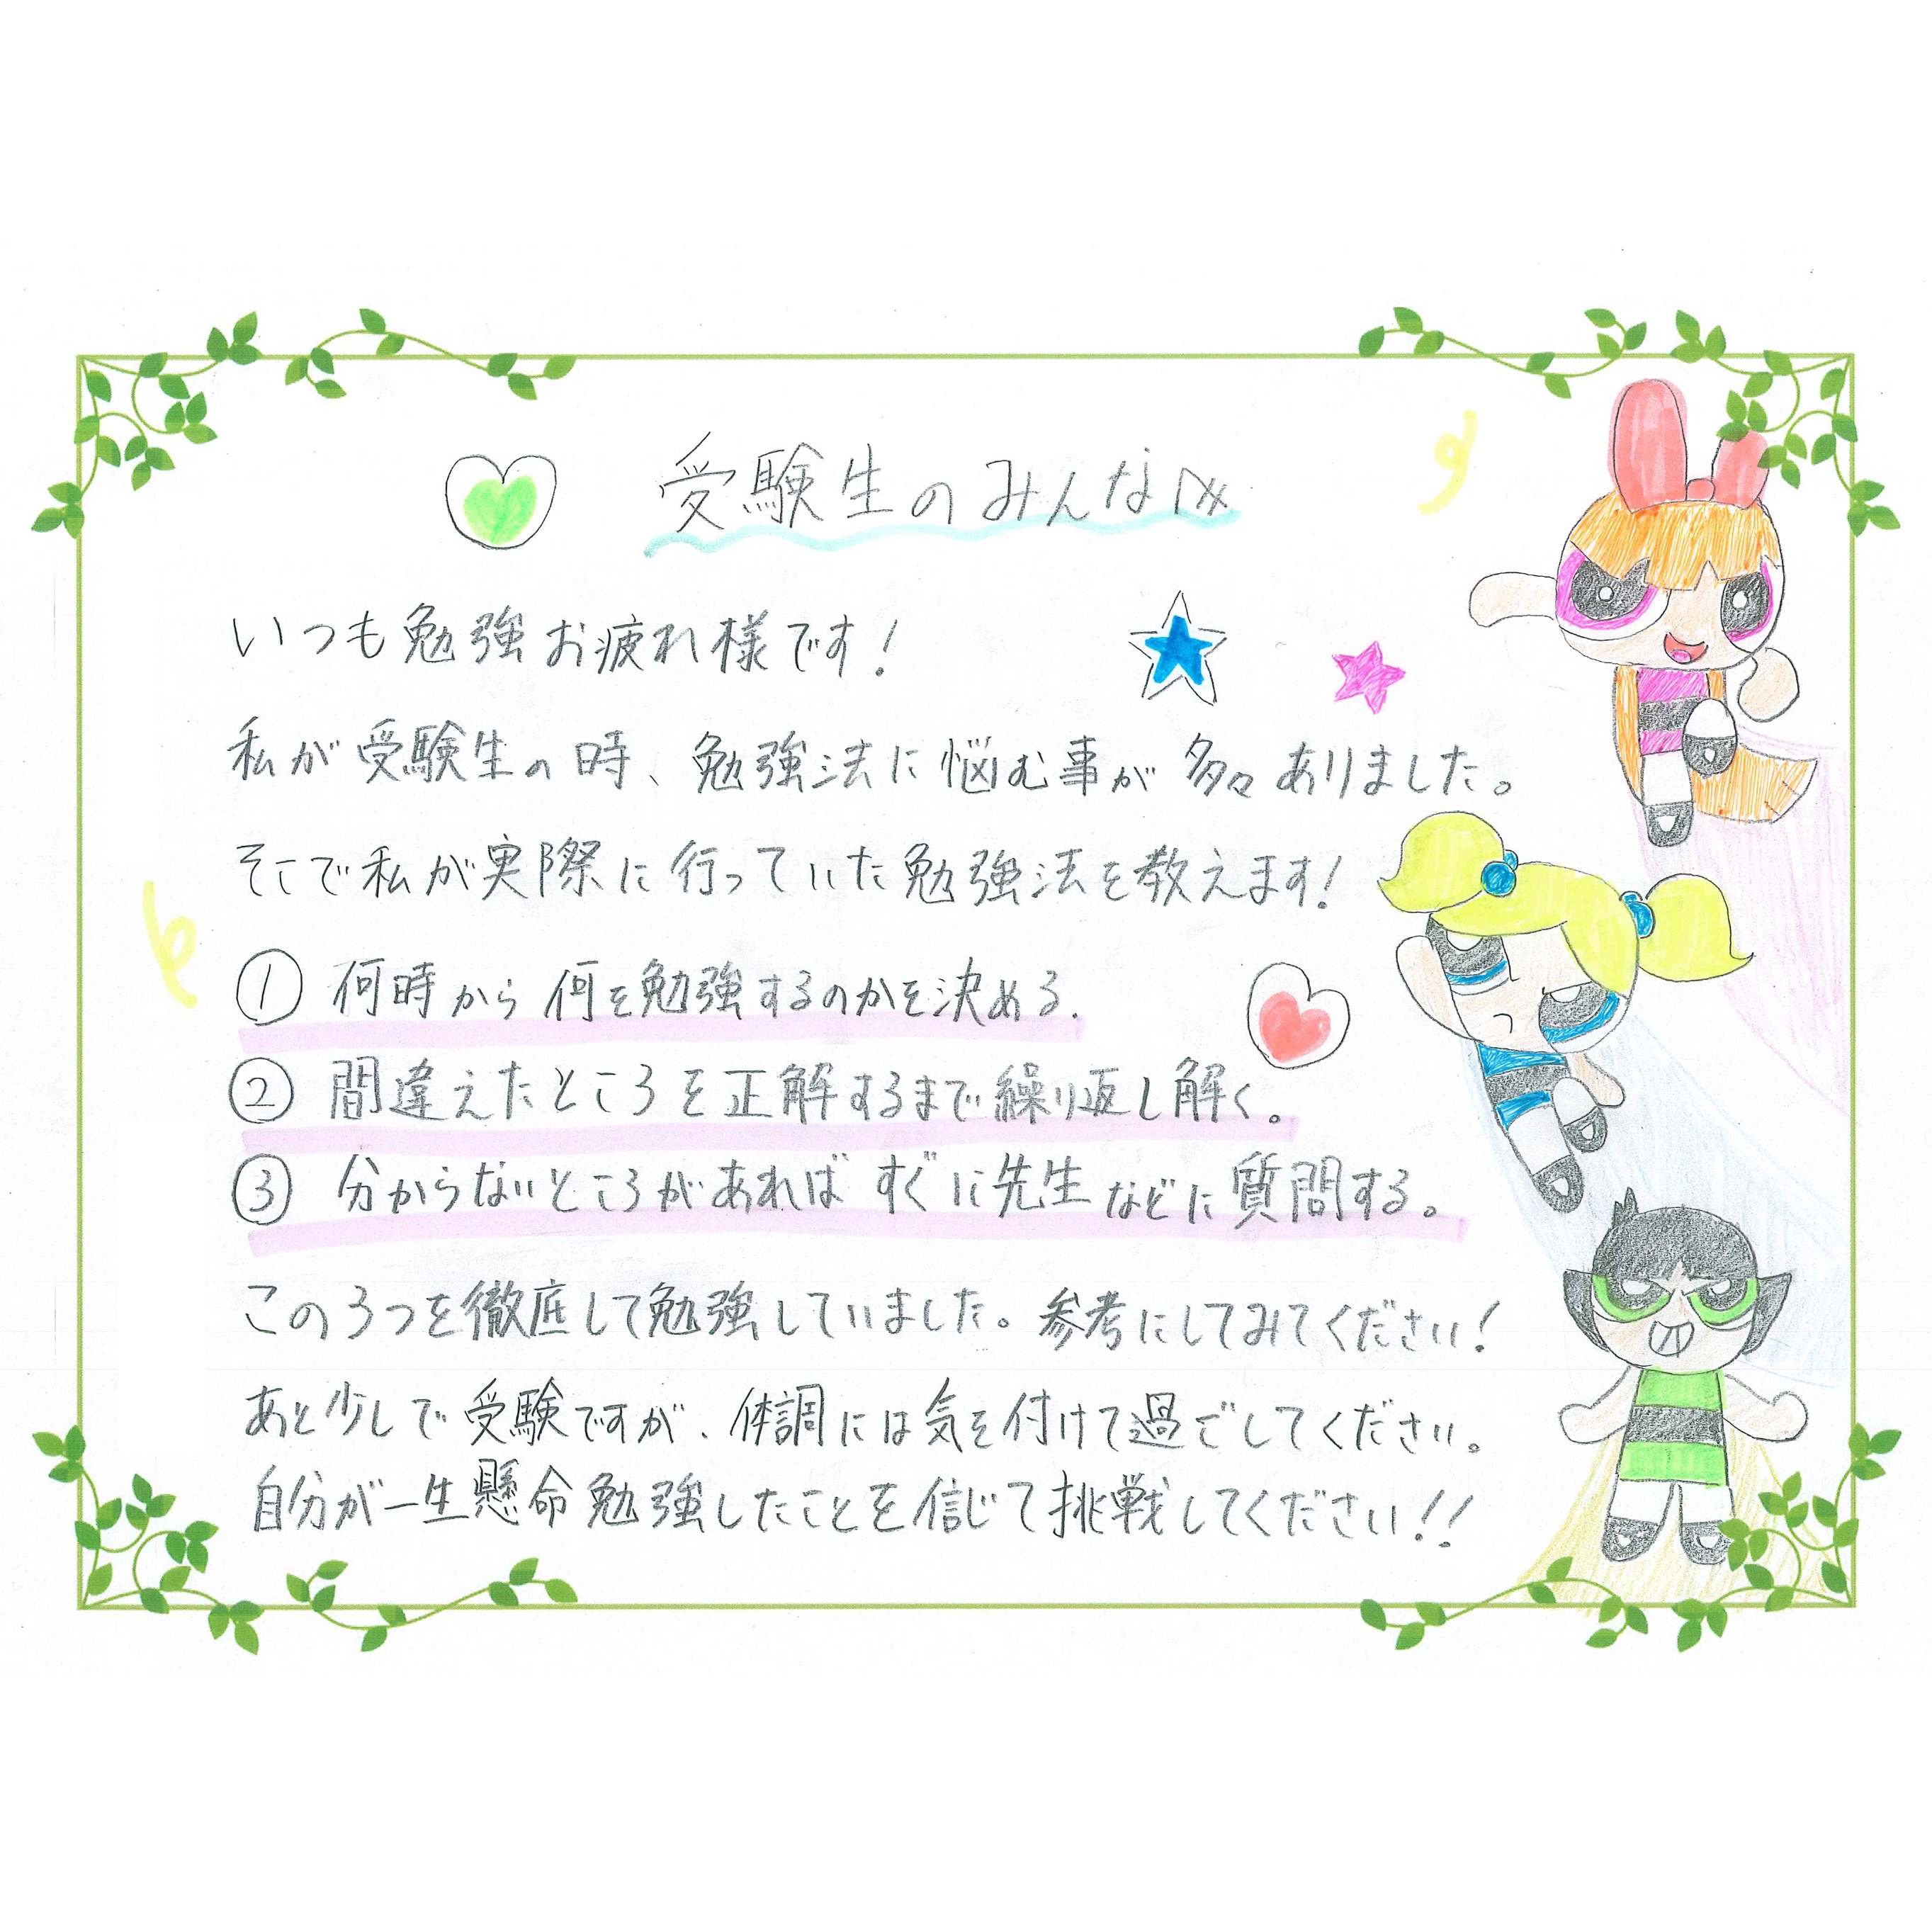 受験生のみんなへ
いつも勉強お疲れ様です!
私が受験生の時、勉強法に悩む事が多々ありました。
そこで私が実際に行っていた勉強法を教えます!
① 何時から何を勉強するのかを決める.
② 間違えたところを正解するまで繰り返し解く。
③ 分からないところがあれば すぐに先生などに質問する。
この3つを徹底して勉強していました。参考にしてみてください!
あと少しで受験ですが、体調には気を付けて過ごしてください。
自分が一生懸命勉強したことを信じて挑戦してください!!